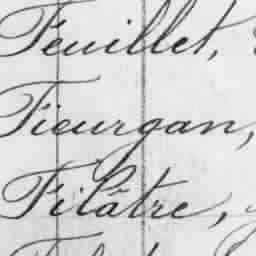 Feuillet,
Fieurgan,
Filâtre,